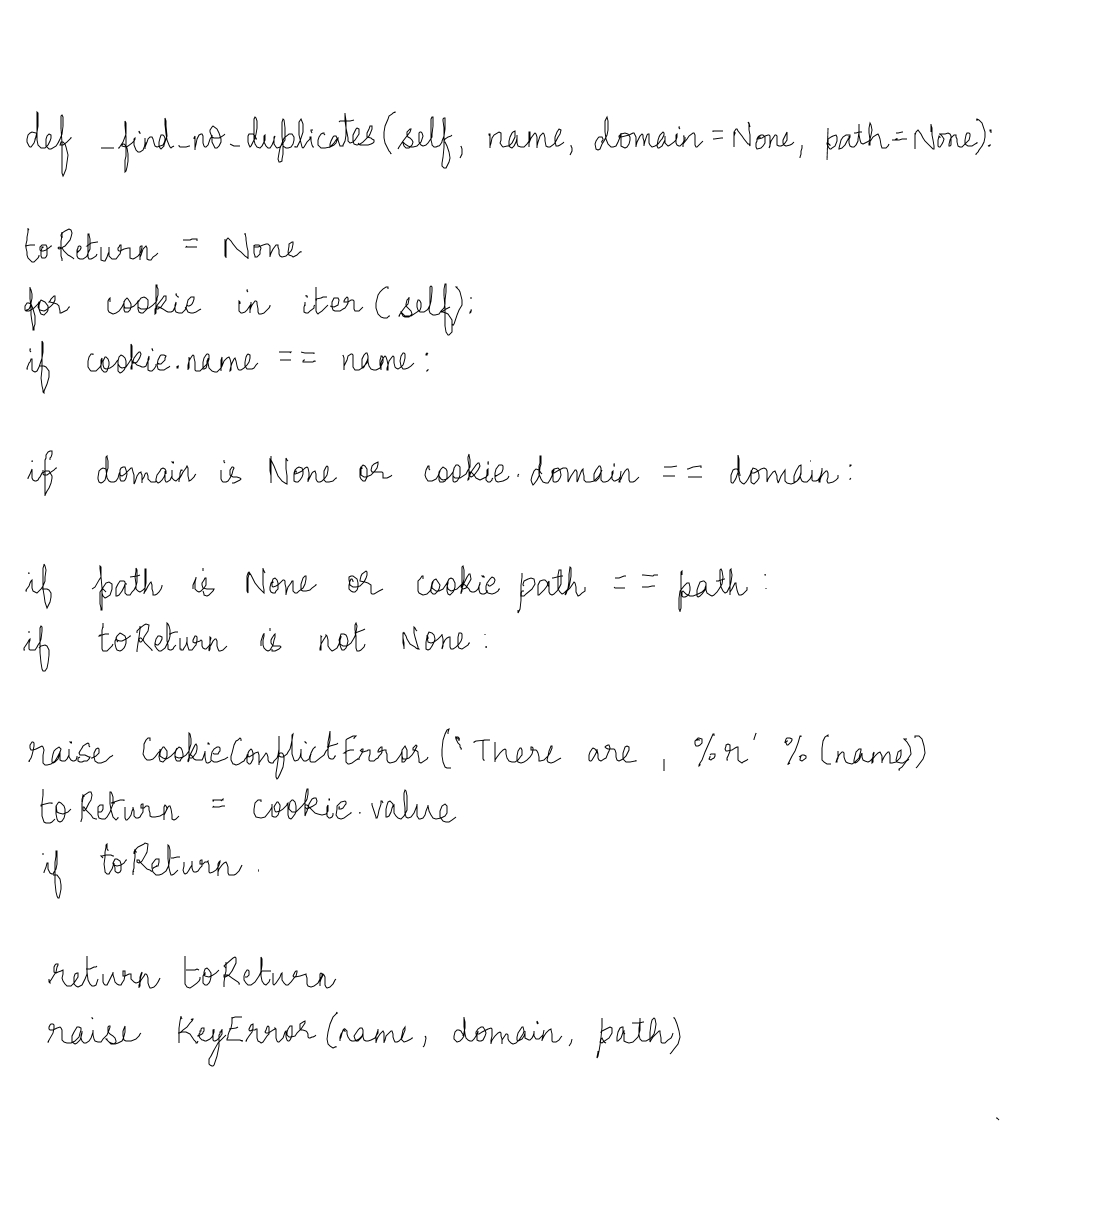 def _find_no_duplicates(self, name, domain=None, path=None):
toReturn = None
for cookie in iter(self):
if cookie.name == name:
if domain is None or cookie.domain == domain:
if path is None or cookie path == path:
if toReturn is not None:
raise CookieConflictError('There are , %r' % (name))
toReturn = cookie.value
if toReturn.
return toReturn
raise KeyError(name, domain, path)